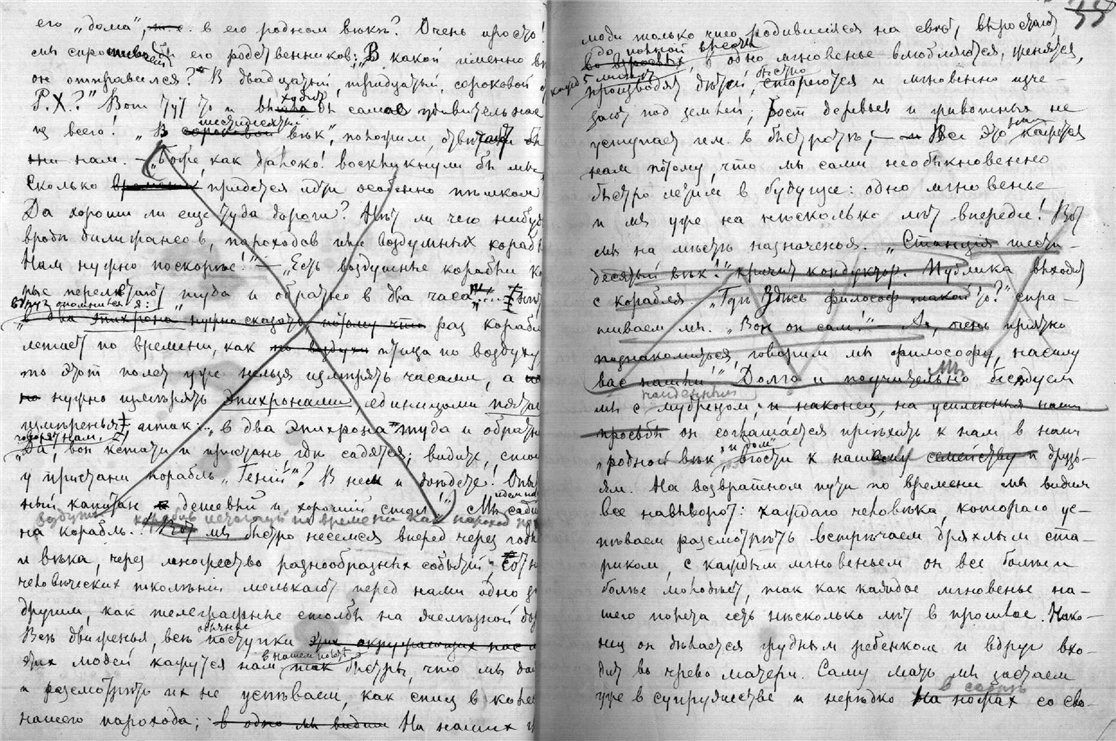 его „дома", в его родном вѣкѣ? Очень просто!
мы спросили бы его родственников: В какой именно вѣ
он отправился?" В двадцатый, тридцатый, сороковой о
Р.Х.?" Вот тут то и будет самое удивительное
из всего! „В сороковой шестидесятый вѣк", положим, отвѣчают
нам. — „Боже, как далеко! воскликнули бы мы,
сколько времени придется идти особенно пѣшком
Да хороши ли еще туда дороги? Нѣт ли чего нибудь
вродѣ дилижансов, пароходов или воздушных корабл
Нам нужно поскорѣе!" — „Есть воздушные корабли ко
рые перелетают туда и обратно в два часа
в два эпихрона нужно сказать потому что раз корабл
летает по времени, как по воздуху птица по воздуху
то этот полет уже нельзя измѣрять часами, а
нужно измѣрять эпихронами единицами
измѣренья итак: в два эпихрона туда и обратно
Да! вон кстати и пристань гдѣ садятся; видите, стои
у пристани корабль „Гений"? В нем и поѣдете!
ный капитан дешевый и хороший стол". Мы
на корабль. мы быстро несемся вперед через год
и вѣка, через множество разнообразных событий. Сотн
человѣческих поколѣний мелькают перед нами одно за
другим, как телеграфные столбы на желѣзной до
Всѣ движенья, всѣ поступки этих окружающих нас
этих людей кажутся нам в нашем полетѣ так быстры, что мы да
и разсмотрѣть их не успѣваем, как спиц в колес
нашего парохода: в одно мы видим На наших г
люди только что родившийся на свѣт, выростают
в одно мгновенье влюбляются, женятся,
производят дѣтей, быстро старются и мгновенно изче-
зают под землей; Рост деревьев и животных не
уступает им в быстротѣ; — Все это нам кажется
нам потому, что мы сами необыкновенно
быстро летим в будущее: одно мгновенье
и мы уже на нѣсколько лѣт впереди! Вот
мы на мѣстѣ назначенья. „Станция шести-
десятый вѣк!" кричит кондуктор. Публика выходит
с корабля „Гдѣ здѣсь философ такой то?" спра-
шиваем мы. „Вон он сам!" Ах, очень приятно
познакомиться, говорим мы философу, насилу
вас нашли!" Долго и поучительно бесѣдуем
мы с мудрецом и наконец, на усиленныя наши
просьбы он соглашается приѣхать к нам в наш
родной вѣк в гости к нашему семейству и друзь-
ям. На возвратном пути по времени мы видим
все навыворот: каждаго человѣка, котораго ус-
пѣваем разсмотрѣть встрѣчаем дряхлым ста-
риком, с каждым мгновеньем он все болѣе и
болѣе молодѣет, так как каждое мгновенье на-
шего полета есть нѣсколько лѣт в прошлое. Нако-
нец он дѣлается грудным ребенком и вдруг вхо-
дит во чрево матери. Саму мать мы застаем
уже в супружествѣ и нерѣдко на ножах со сво-